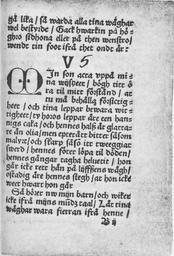 gå lika / så warda alla tina wäghar
wel bestyrde / Gack hwarkin på hö-
ghro sidhona eller på then wenstro /
wendt tin foot ifrå thet ondt är:
V 5
MIn son acta uppå mi-
na wijsheet / bögh titt ö-
ra til mitt förstånd / at
tu må behålla förstan-
heet / och tina leppar bewara wis-
righeet / ty horos leppar äre een han-
nugs kaka / och hennes hals är glatta-
re än olia / men epterååt bitter såsom
malyrt / och skarp såso itt tweeggiat
swerd / hennes föter löpa til döden /
hennes gångar ragha helwetit / hon
går icke rätt hän på lijffzens wägh /
ostadig äre hennes stegh / at hon icke
weet hwart hon går
Så hören nw min barn / och wiker
icke ifrå mijns mūdz taal / Lät tina
wäghar wara fierran ifrå henne /
B ij